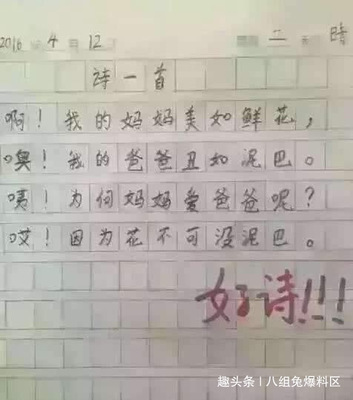 2016 年 4 月 12 二 晴
诗一首
啊！我的妈妈美如鲜花，
噢！我的爸爸丑如泥巴。
咦！为何妈妈爱爸爸呢？
哎！因为花不可没泥巴。
好诗!!!
趣头条 | 八组兔爆料区